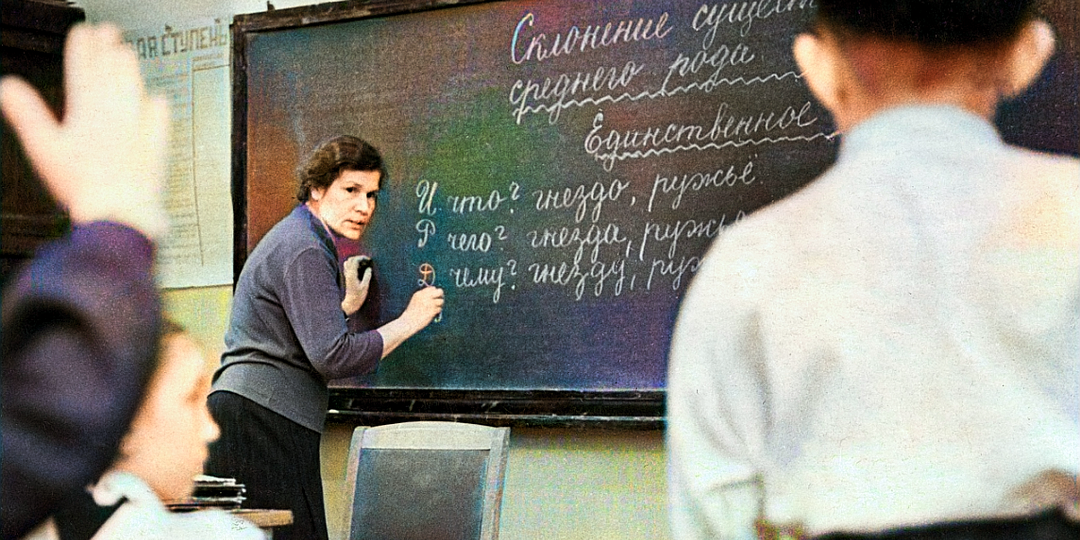 СТУПЕНЬ
Склонение сущест
среднего рода.
Единственное
И что? гнездо, ружьё.
Р чего? гнезда, ружь
Д чему? гнезду, руж